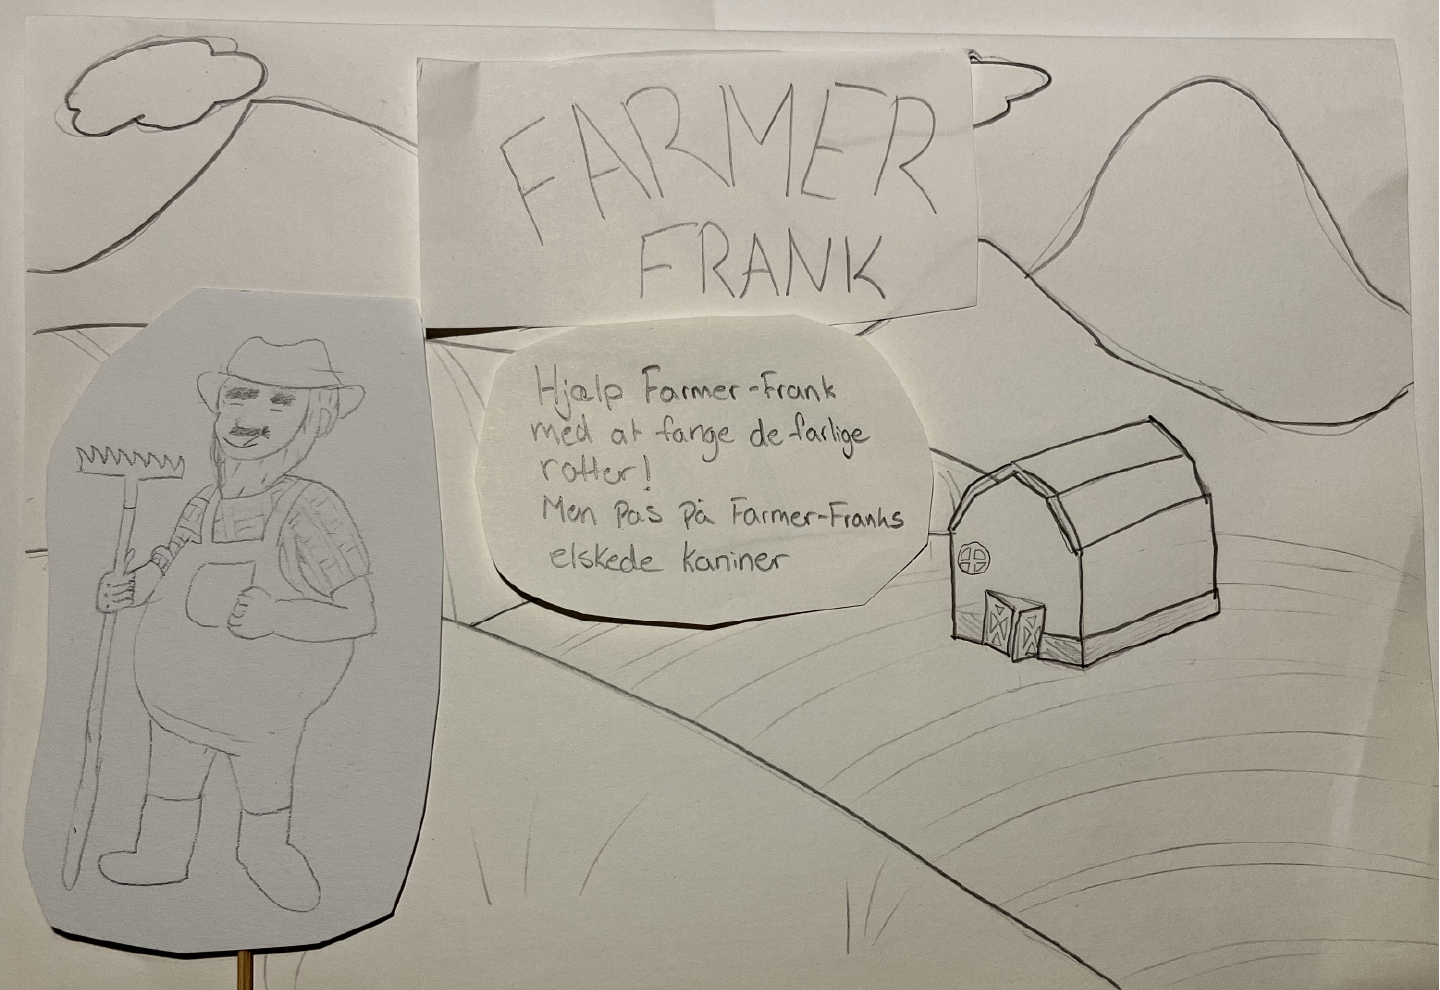 FARMER
FRANK
Hjælp Farmer-Frank
med at fange de farlige
rotter!
Men pas på Farmer-Franks
elskede kaniner